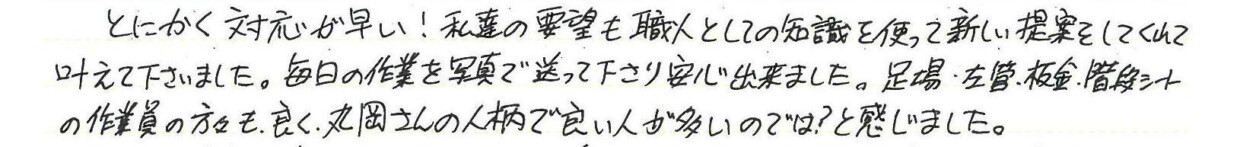 とにかく対応が早い！私達の要望も職人としての知識を使って新しい提案をしてくれて
叶えて下さいました。毎日の作業を写真で送って下さり安心出来ました。足場・左管・板金・階段シート
の作業員の方々も、良く、丸岡さんの人柄で良い人が多いのでは？と感じました。